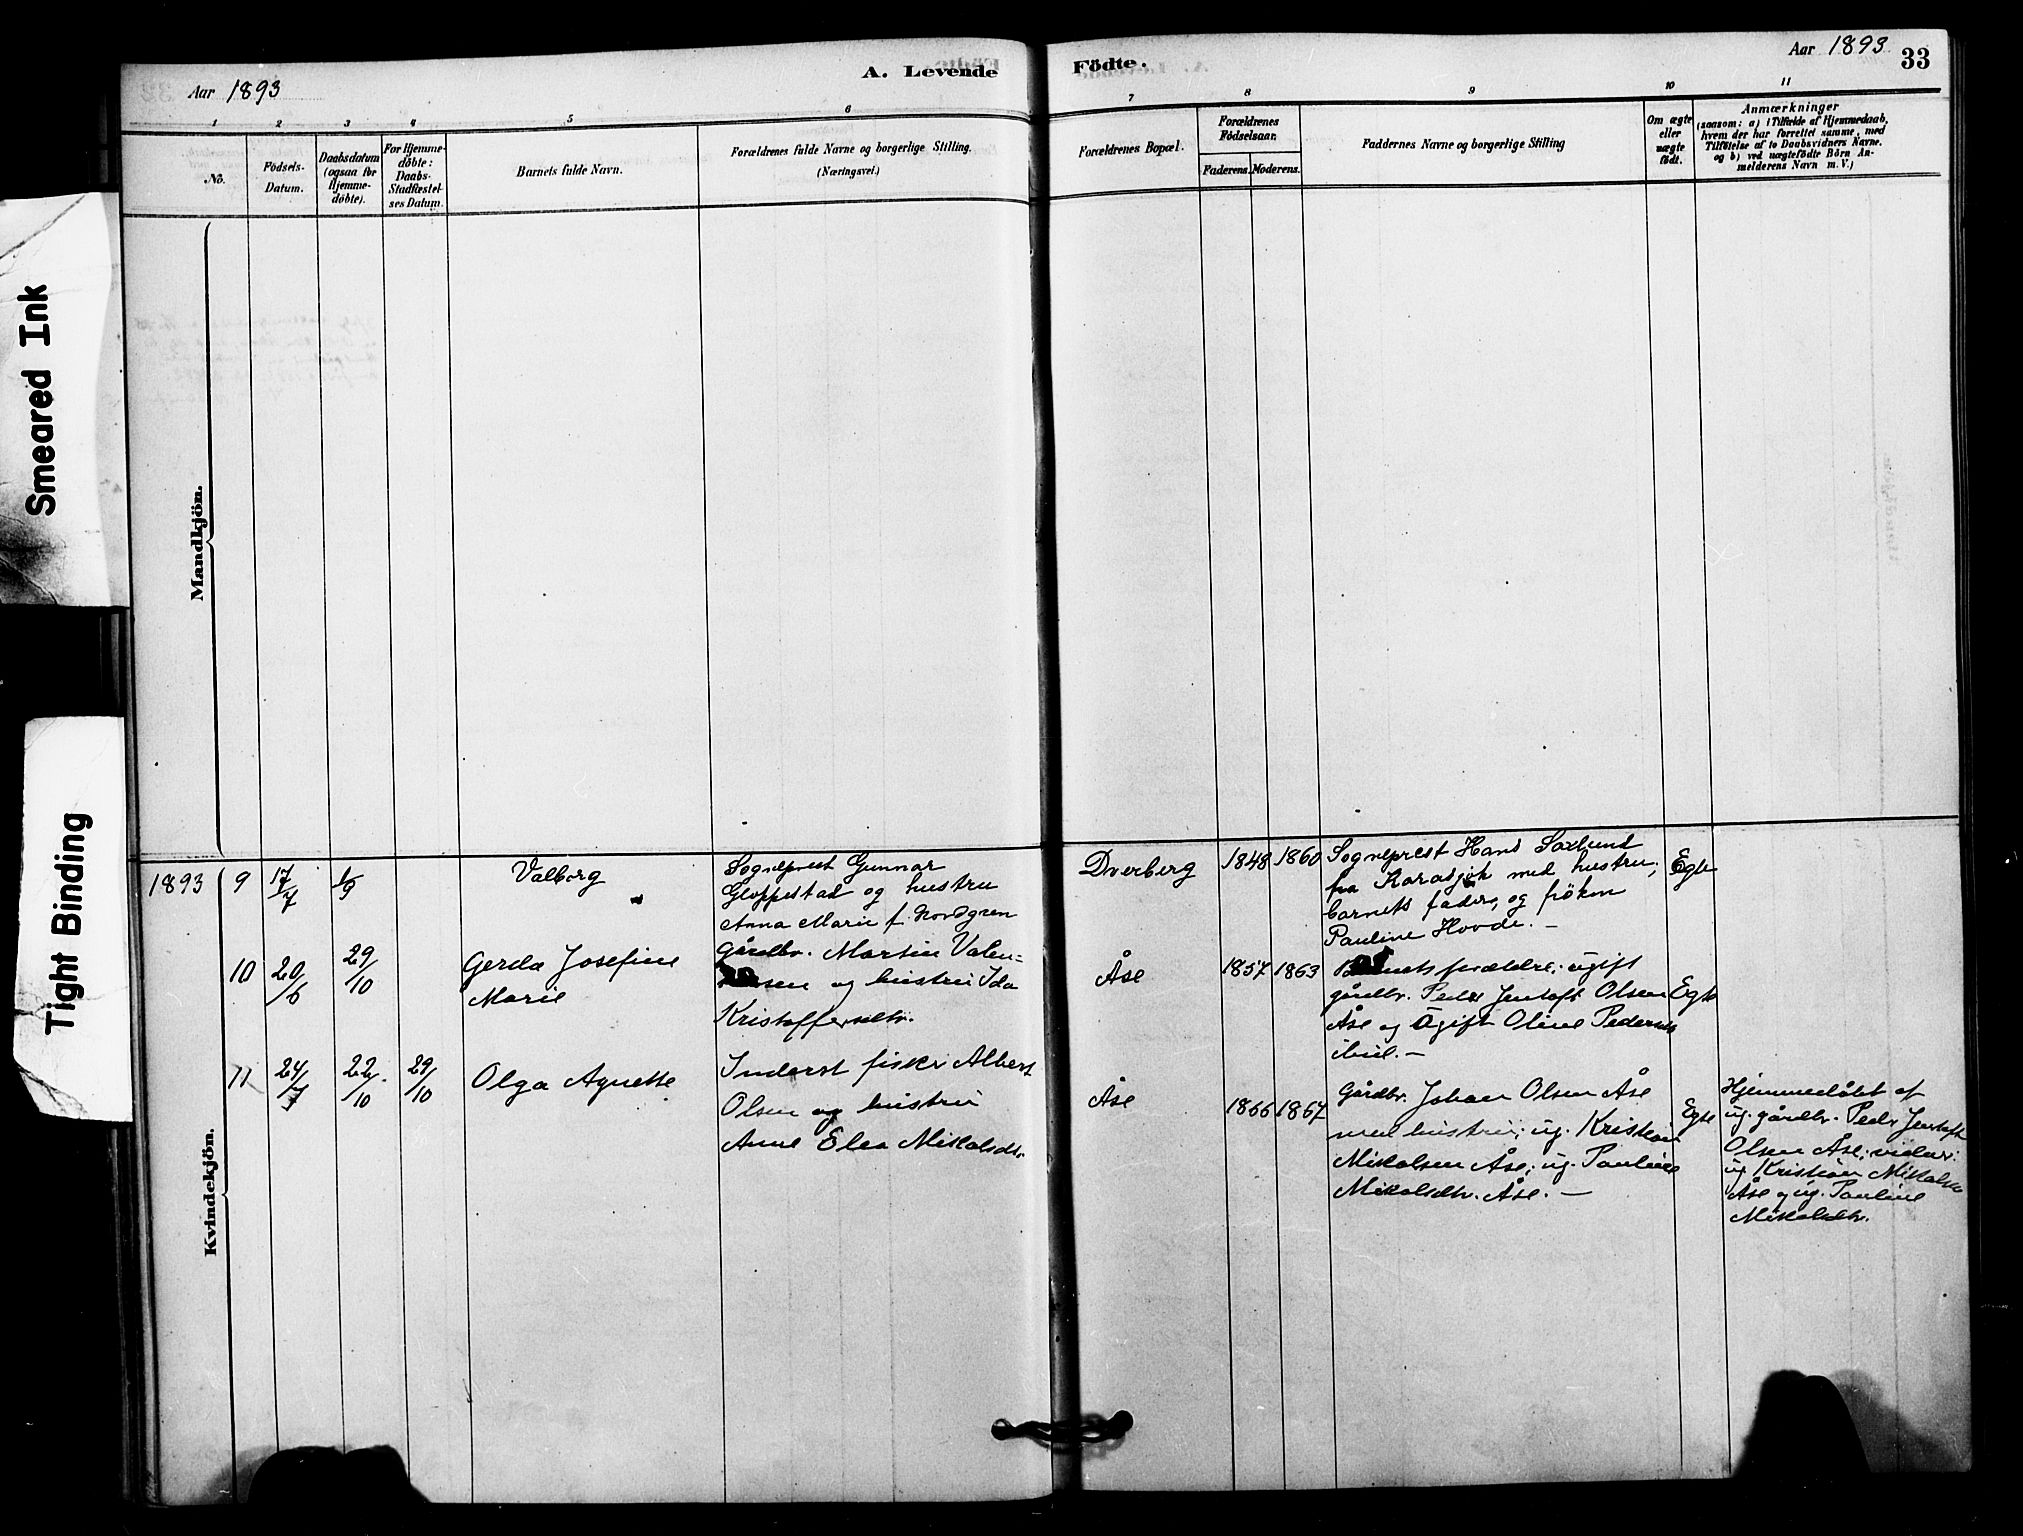 Smeared Ink
Tight Binding
Aar 1893
A. Levende
Födte.
Aar 1893
33
1 2 3 4 5 6
7 8 9 10 11
No.
Födsels-
Datum.
Daabsdatum
(ogsaa for
Hjemme-
döbte).
For Hjemme-
döbte:
Daabs-
Stadfæstel-
ses Datum.
Barnets fulde Navn.
Forældrenes fulde Navne og borgerlige Stilling.
(Næringsvei.)
Forældrenes Bopæl.
Forældrenes
Födselsaar.
Faderens.
Moderens.
Faddernes Navne og borgerlige Stilling
Om ægte
eller
uægte
födt.
Anmærkninger
(saasom: a) i Tilfælde af Hjemmedaab,
hvem der har forrettet samme, med
Tilföielse af to Daabsvidners Navne.
og b) ved uægtefödte Börn An-
melderens Navn m. V.)
Mandkjön.
Kvindekjön.
1893 9 17/7 1/9 Valborg
Sogneprest Gunnar
Gloppestad og hustru
Anna Marie f. Nordgren
Dverberg 1848 1860
Sogneprest Hans Saxlund
fra Karasjok med hustru;
barnets fader, og fröken
Pauline Hovde. —
Egte
10 20/6 29/10
Gerda Josefine
Marie
Gårdbr. Martin Valen=
sen og hustru Ida
Kristoffersdtr.
Åse 1857 1863
Barnets forældre; ugift
gårdbr. Peder Jentoft Olsen
Åse og ugift Oline Pedersen
ibid. —
Egte
11 24/7 22/10 29/10 Olga Agnette
Inderst fisker Albert
Olsen og hustru
Anne Elea Mikalsdtr.
Åse 1866 1867
Gårdbr. Johan Olsen Åse
med hustru; ug. Kristian
Mikalsen Åse; ug. Pauline
Mikalsdtr. Åse. —
Egte
Hjemmedöbt af
ug. gårdbr. Peder Jentoft
Olsen Åse; vidner:
ug. Kristian Mikalsen
Åse og ug. Pauline
Mikalsdtr.